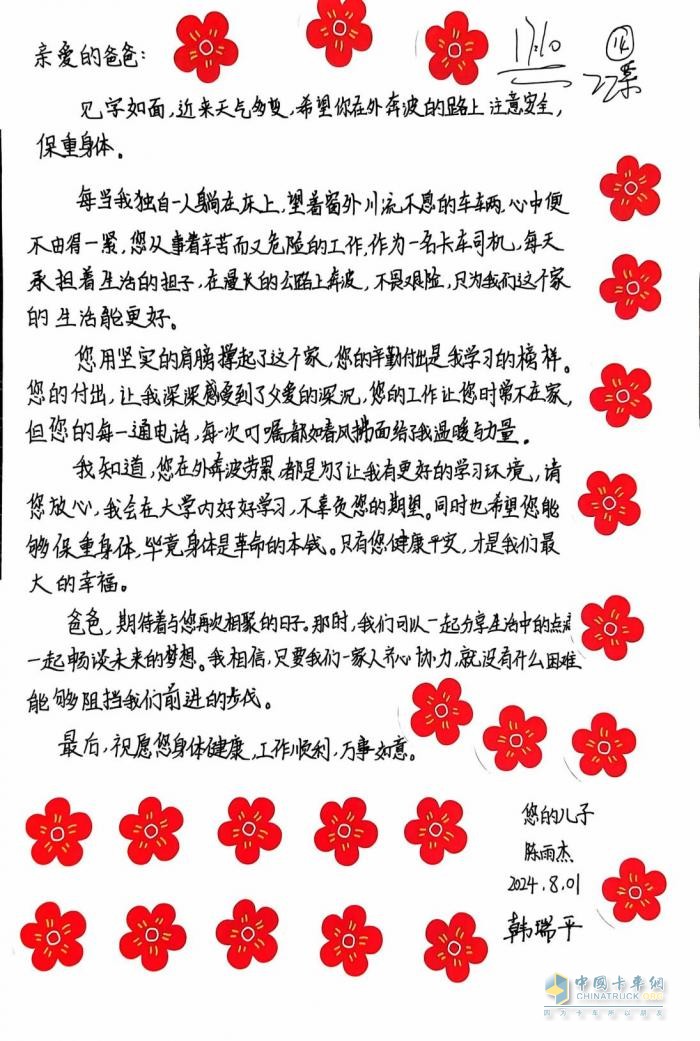 亲爱的爸爸：
17:10
见字如面，近来天气多变，希望你在外奔波的路上注意安全，
保重身体。
每当我独自一人躺在床上，望着窗外川流不息的车车两，心中便
不由得一紧，您从事着辛苦而又危险的工作，作为一名卡车司机，每天
承担着生活的担子，在漫长的公路上奔波，不畏艰险，只为我们这个家
的生活能更好。
您用坚实的肩膀撑起了这个家，您的辛勤付出是我学习的榜样。
您的付出，让我深深感受到了父爱的深沉，您的工作让您时常不在家，
但您的每一通电话，每一次叮嘱都如春风拂面给了我温暖与力量。
我知道，您在外奔波劳累，都是为了让我有更好的学习环境，请
您放心，我会在大学内好好学习，不辜负您的期望。同时也希望您能
够保重身体，毕竟身体是革命的本钱。只有您健康平安，才是我们最
大的幸福。
爸爸，期待着与您再次相聚的日子。那时，我们可以一起分享生活中的点
一起畅谈未来的梦想。我相信，只要我们一家人齐心协力，就没有什么困难
能够阻挡我们前进的步伐。
最后，祝愿您身体健康，工作顺利，万事如意。
您的儿子
陈雨杰
2024.8.01
韩瑞平
中国卡车网
CHINATRUCK.ORG
因为卡车所以朋友